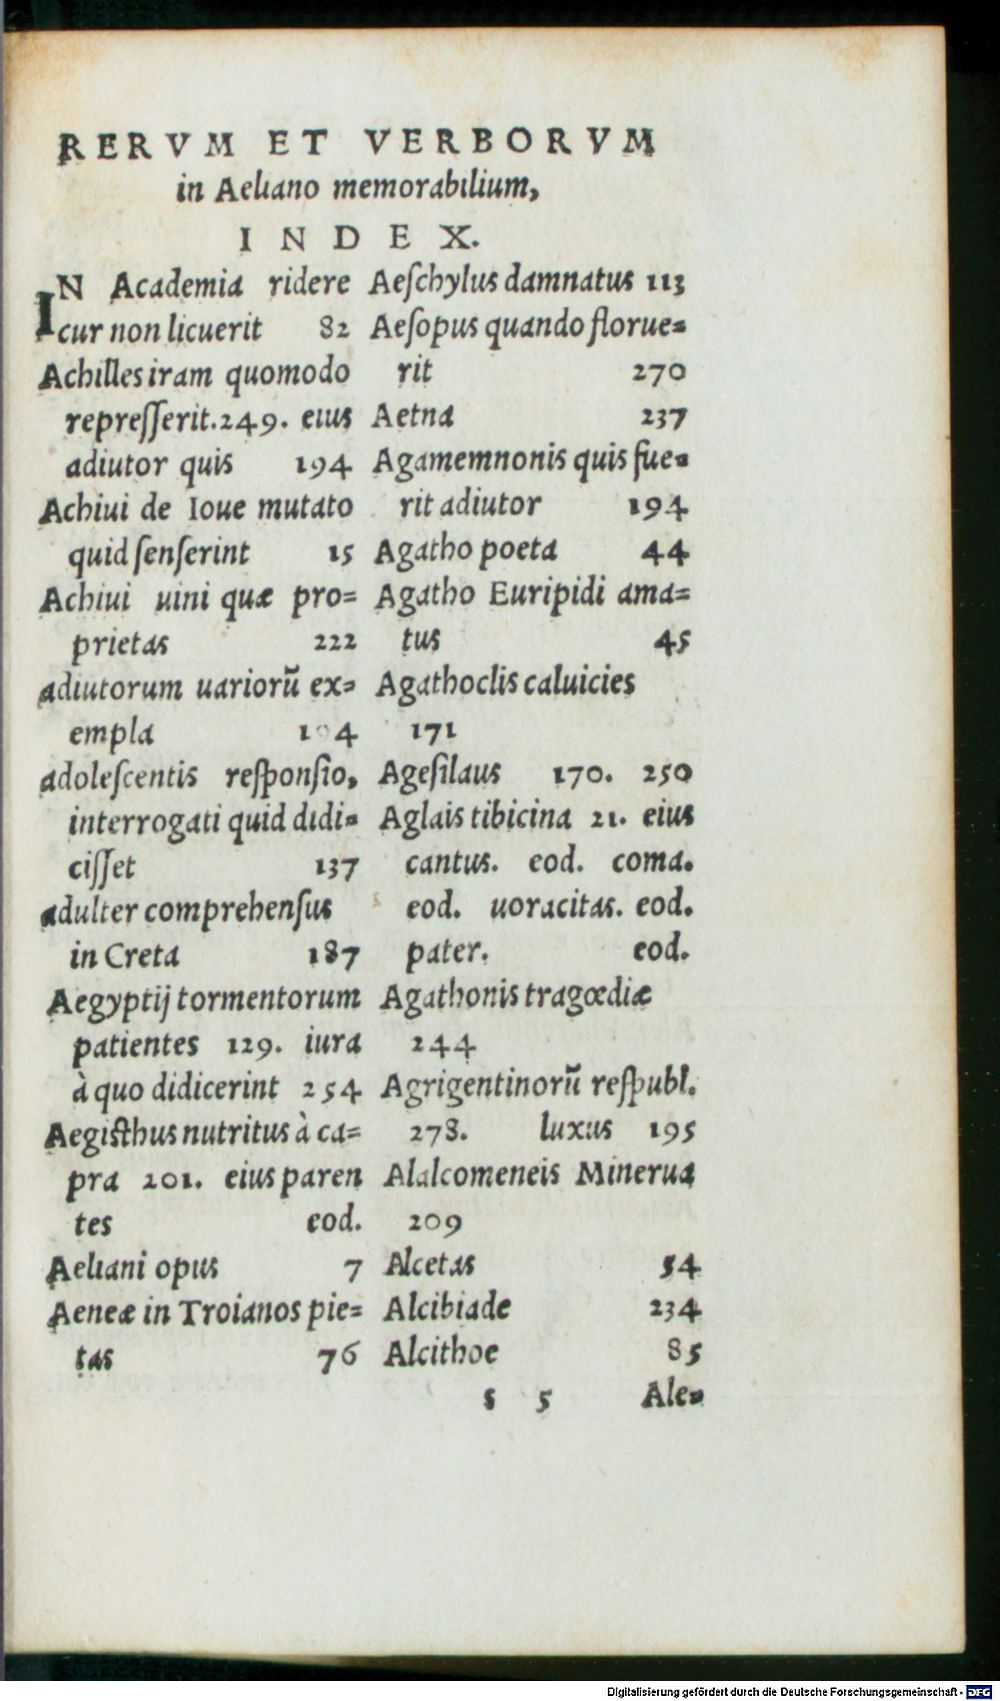 RERVM ET VERBORVM
in Aeliano memorabilium,
INDEX.
IN Academia ridere
cur non licuerit 82
Achilles iram quomodo
repreſſerit.249. eius
adiutor quis 194
Achiui de Ioue mutato
quid ſenſerint 15
Achiui uini quæ pro=
prietas 222
adiutorum uarioru̅ ex=
empla 194
adoleſcentis reſponſio,
interrogati quid didi=
ciſſet 137
adulter comprehenſus
in Creta 187
Aegyptij tormentorum
patientes 129. iura
à quo didicerint 254
Aegiſthus nutritus à ca=
pra 201. eius paren
tes eod.
Aeliani opus 7
Aeneæ in Troianos pie=
tas 76
Aeſchylus damnatus 113
Aeſopus quando florue=
rit 270
Aetna 237
Agamemnonis quis fue=
rit adiutor 194
Agatho poeta 44
Agatho Euripidi ama=
tus 45
Agathoclis caluicies
171
Ageſilaus 170. 250
Aglais tibicina 21. eius
cantus. eod. coma.
eod. uoracitas. eod.
pater. eod.
Agathonis tragœdiæ
244
Agrigentinoru̅ reſpubl.
278. luxus 195
Alalcomeneis Minerua
209
Alcetas 54
Alcibiade 234
Alcithoe 85
s 5 Ale=
Digitalisierung gefördert durch die Deutsche Forschungsgemeinschaft - DFG